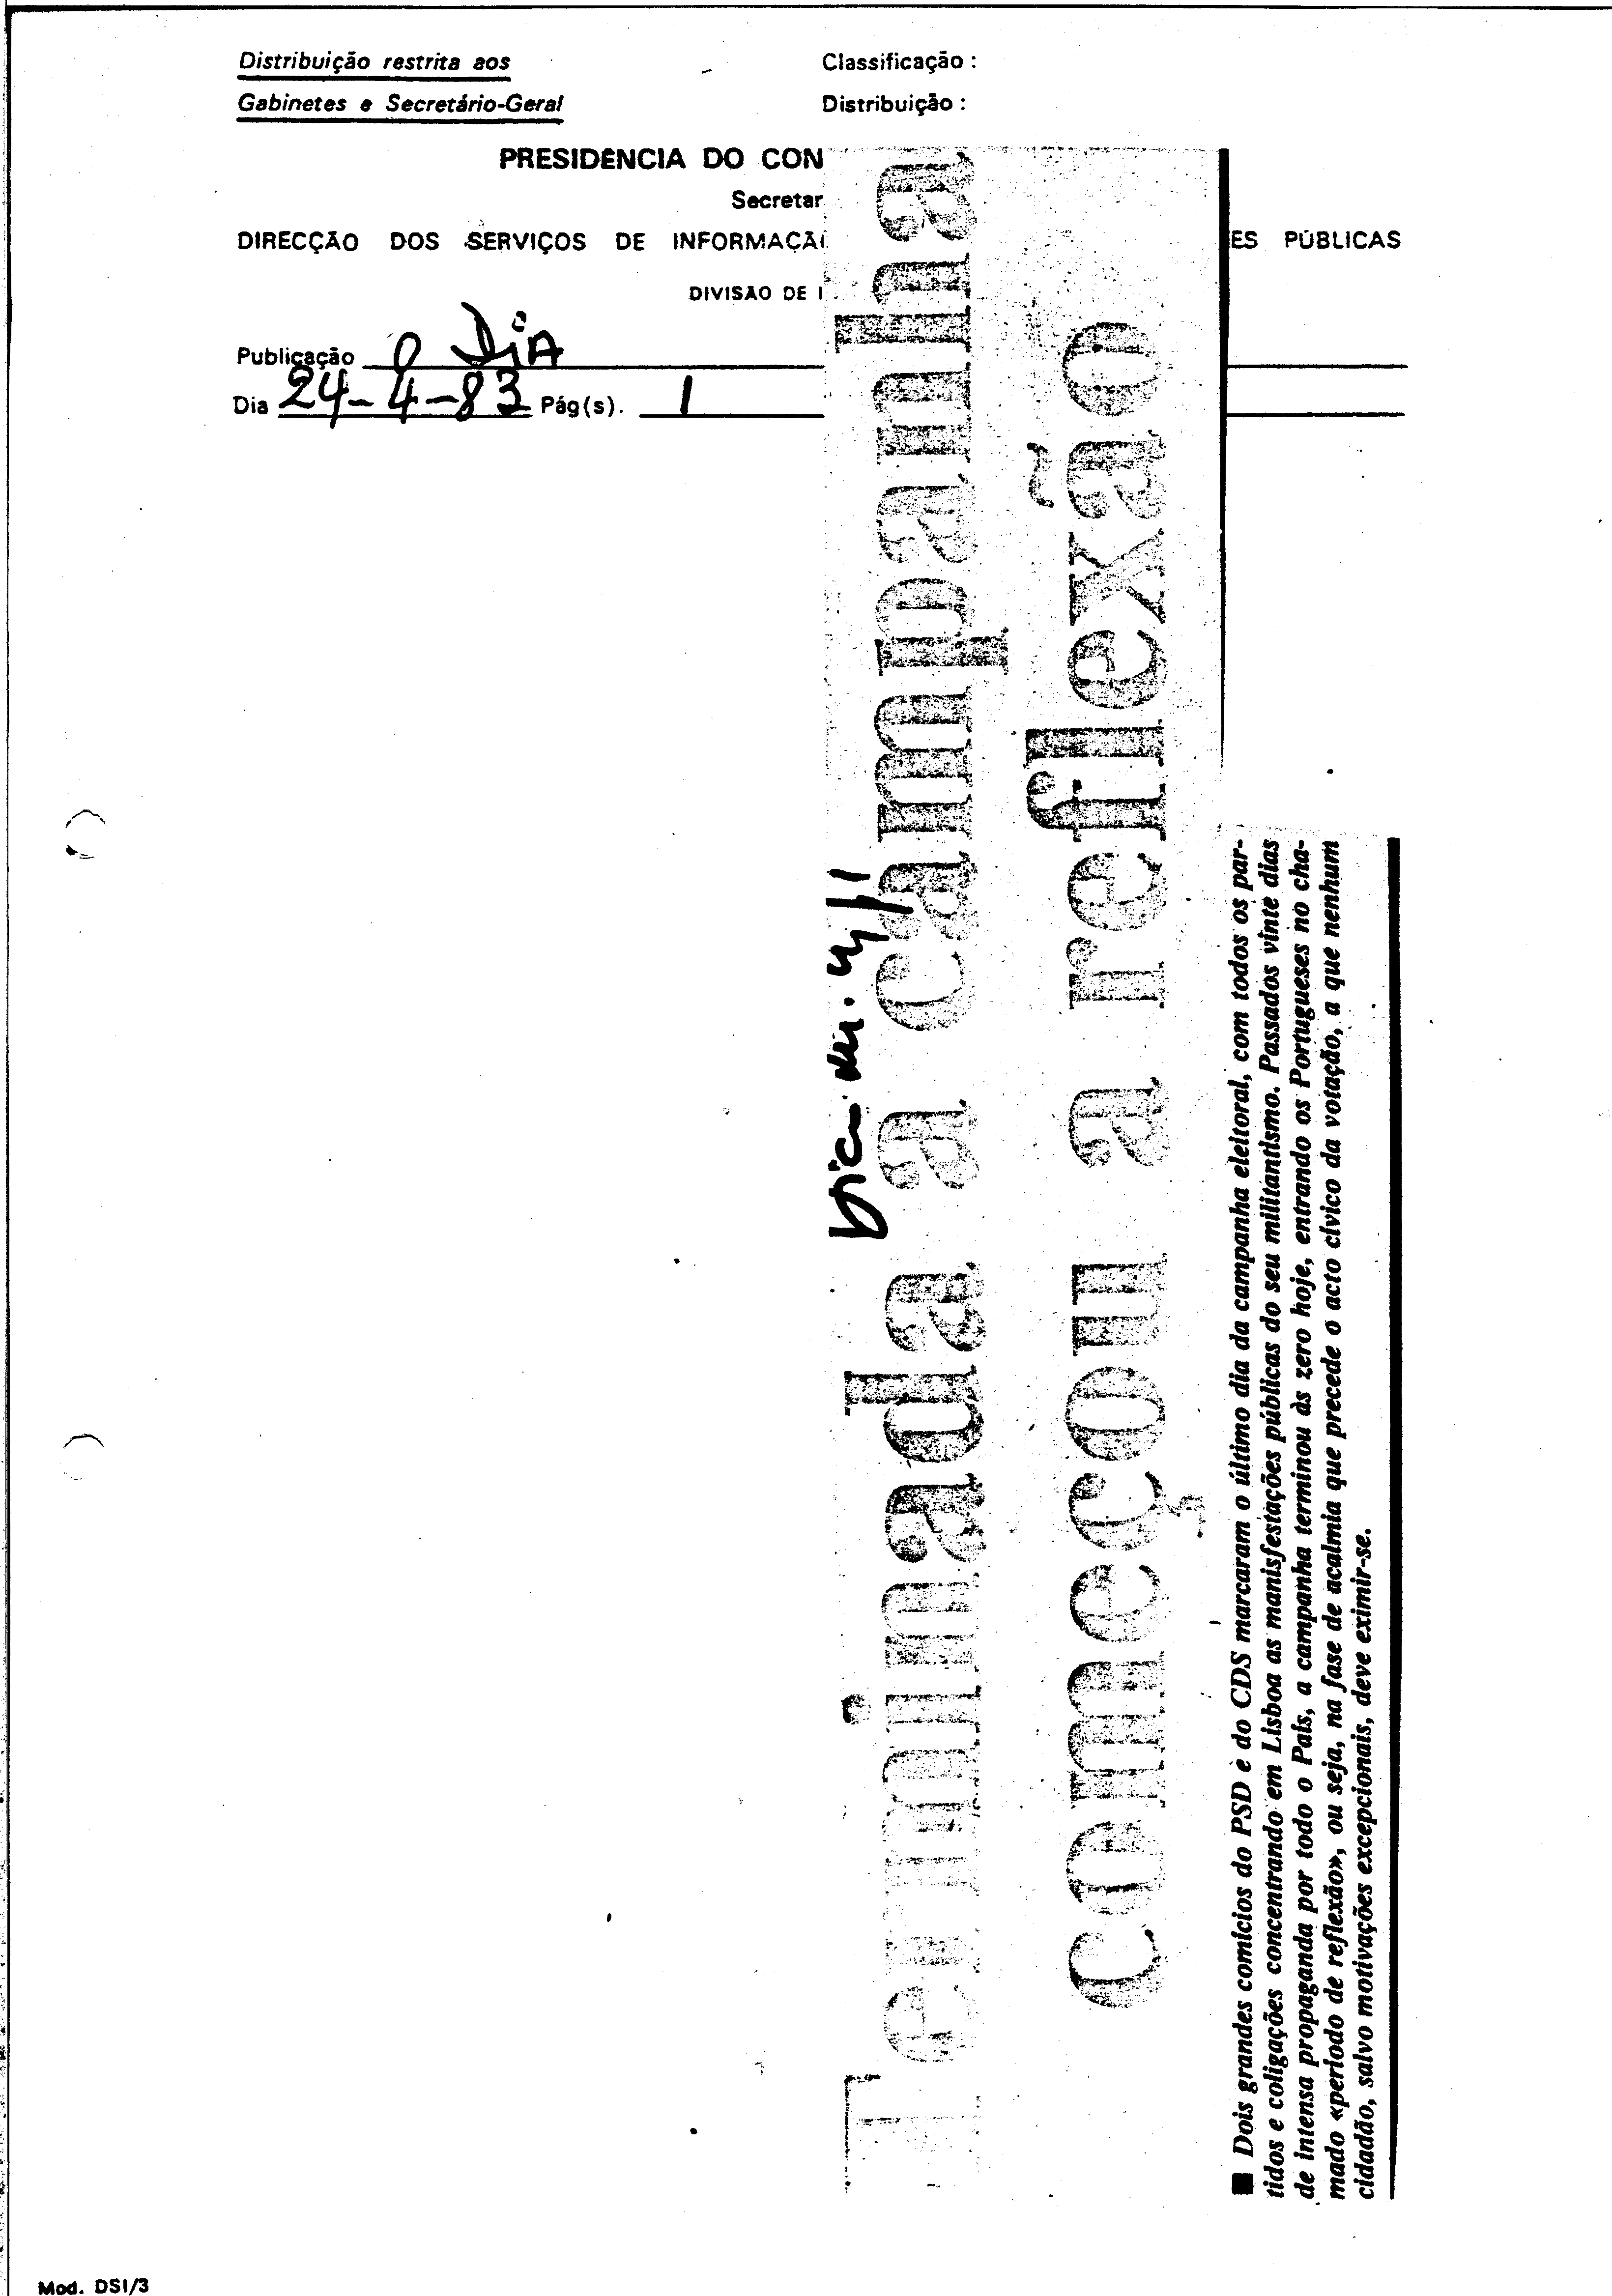 Distribuição restrita aos
Gabinetes e Secretário-Geral
Classificação :
Distribuição :
PRESIDÊNCIA DO CON
Secretar
DIRECÇÃO DOS SERVIÇOS DE INFORMAÇÃ ES PÚBLICAS
DIVISÃO DE
Publicação O DiA
Dia 24-4-83 Pág(s). 1
Terminada a campanha
começou a reflexão
■ Dois grandes comícios do PSD e do CDS marcaram o último dia da campanha eleitoral, com todos os par-
tidos e coligações concentrando em Lisboa as manisfestações públicas do seu militantismo. Passados vinte dias
de intensa propaganda por todo o País, a campanha terminou às zero hoje, entrando os Portugueses no cha-
mado «período de reflexão», ou seja, na fase de acalmia que precede o acto cívico da votação, a que nenhum
cidadão, salvo motivações excepcionais, deve eximir-se.
Mod. DSI/3